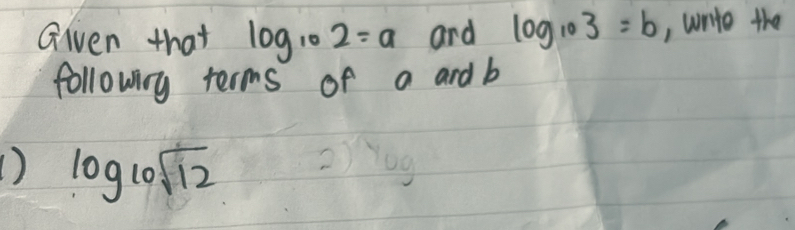 Given that log₁₀ 2 = a and log₁₀ 3 = b, write the
following terms of a and b
1) log₁₀ √12 2) log